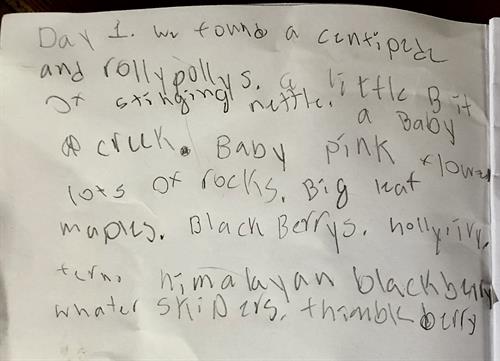 Day 1. we found a centipede
and rollypollys. a little Bit
of stinging nettle. a Baby
creek. Baby pink flower
lots of rocks. Big leaf
maples. BlackBerrys. holly. ivy.
fern. himalayan blackberry
whater skipers. thimbleberry